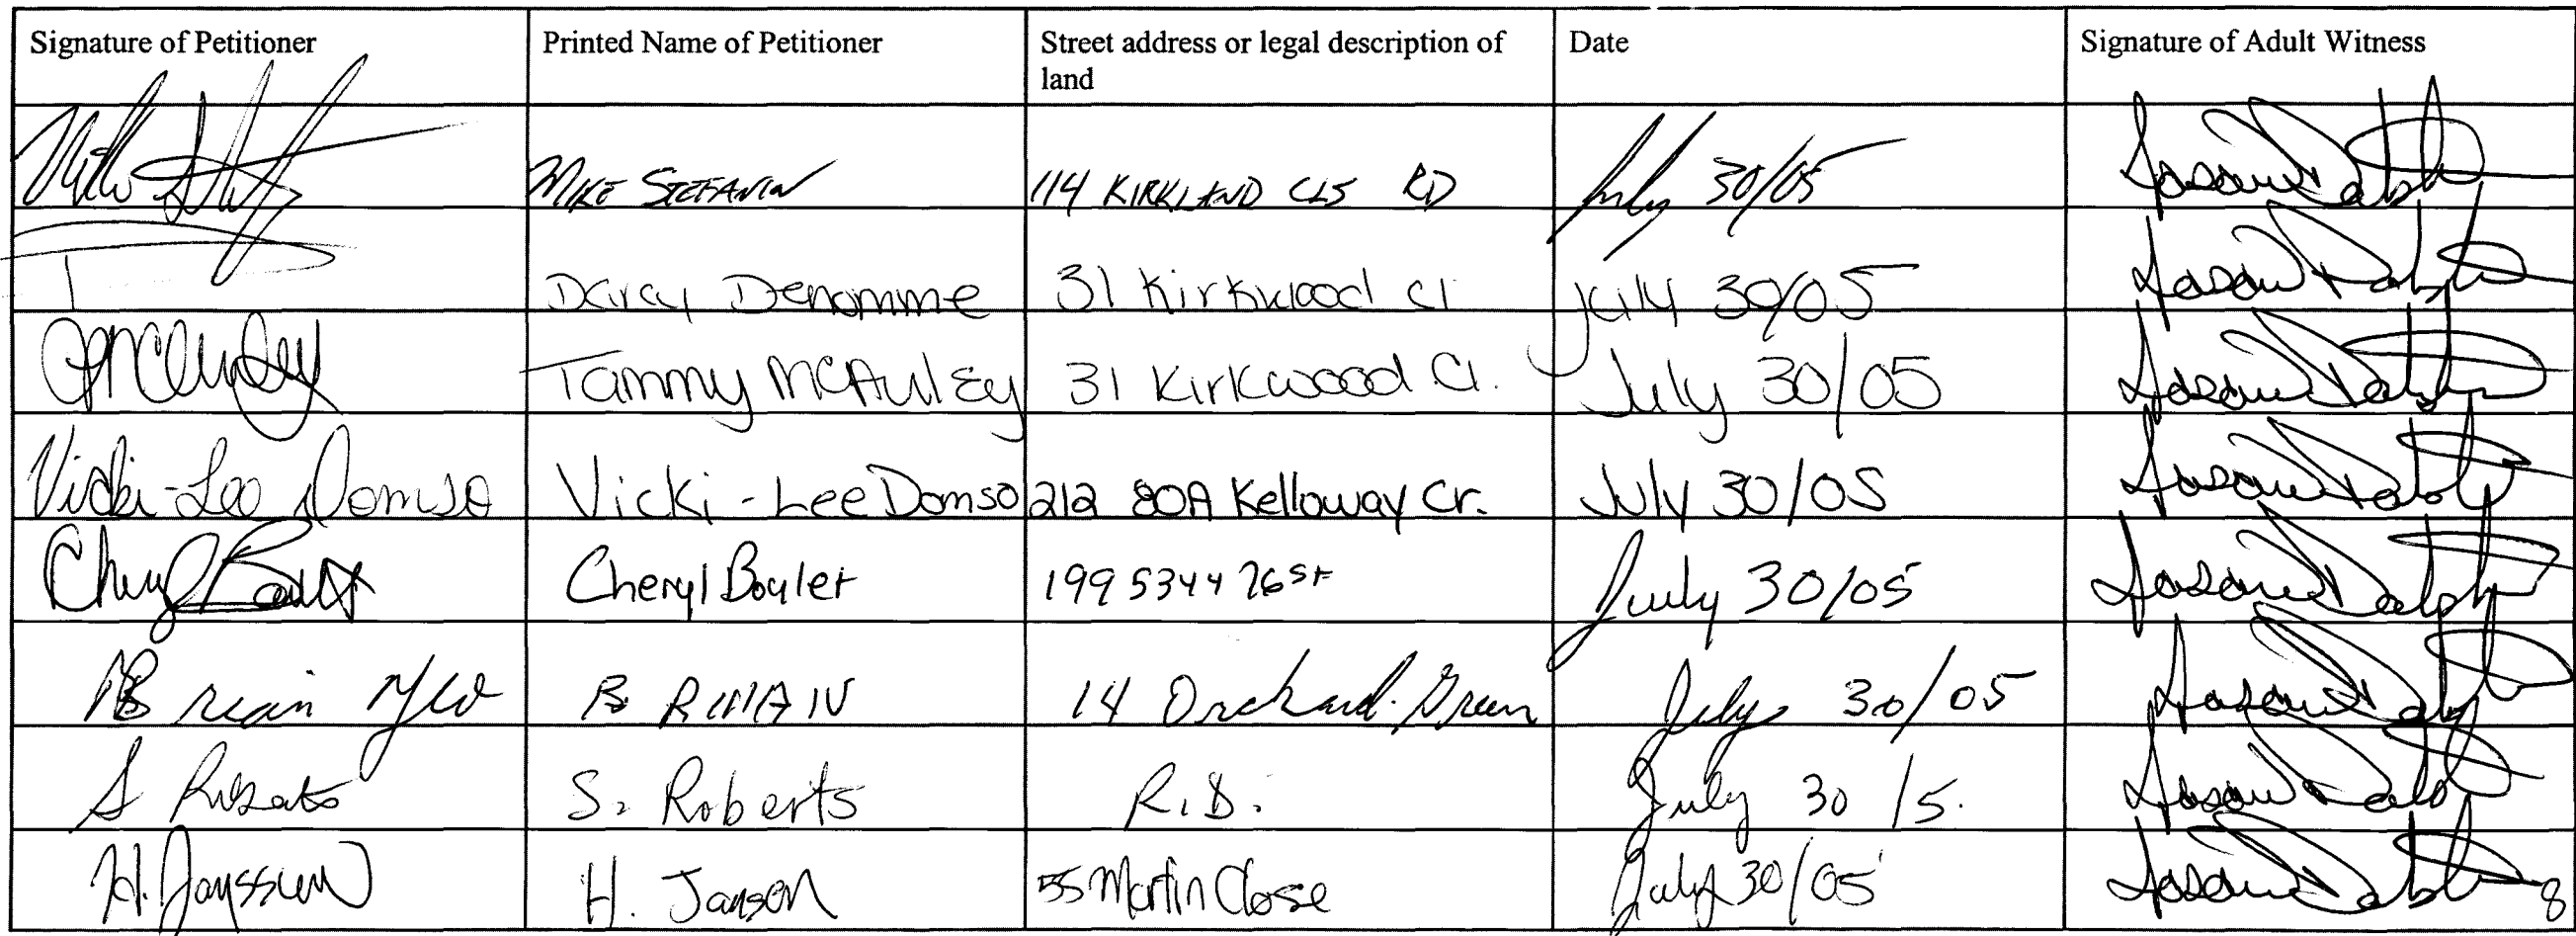 Signature of Petitioner Printed Name of Petitioner Street address or legal description of land Date Signature of Adult Witness
MIKE STEFANIW 114 KIRKLAND CLS RD July 30/05
Darcy Denomme 31 Kirkwood Cl July 30/05
Tammy McAuley 31 Kirkwood Cl. July 30/05
Vicki-Lee Domso Vicki-Lee Domso 212 80A Kelloway Cr. July 30/05
Cheryl Boulet 199 5344 76 St July 30/05
Brian 14 Orchard Green July 30/05
S Roberts S. Roberts R.D. July 30/5.
H. Janssen H. Jansen 55 Martin Close July 30/05
8